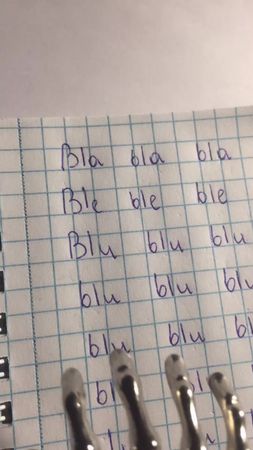 Bla bla bla
Ble ble ble
Blu blu blu
blu blu
blu blu